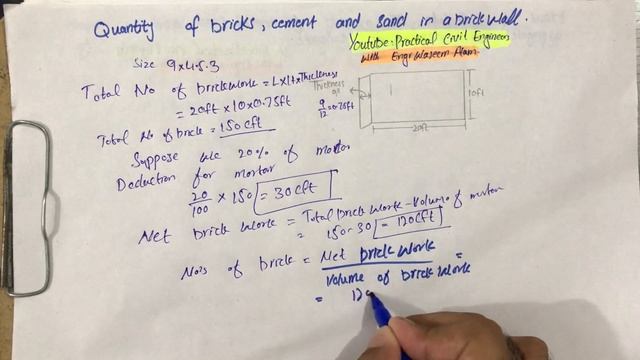 Quantity of bricks, cement and sand in a brick wall.
Youtube: Practical Civil Engineer
with Engr Waseem Alam
Size 9x4.5.3
Total No of brickwork = LxHxThickness
= 20ft x 10 x 0.75ft
Total No of brick = 150 cft
Thickness
9
12 = 0.75ft
10ft
20ft
Suppose we 20% of mortor
Deduction for mortar
20
100 x 150 = 30 cft
Net brick work = Total brick work - Volume of mortar
= 150 - 30 = 120 cft
Nois of brick = Net brick work =
Volume of brick work
= 120